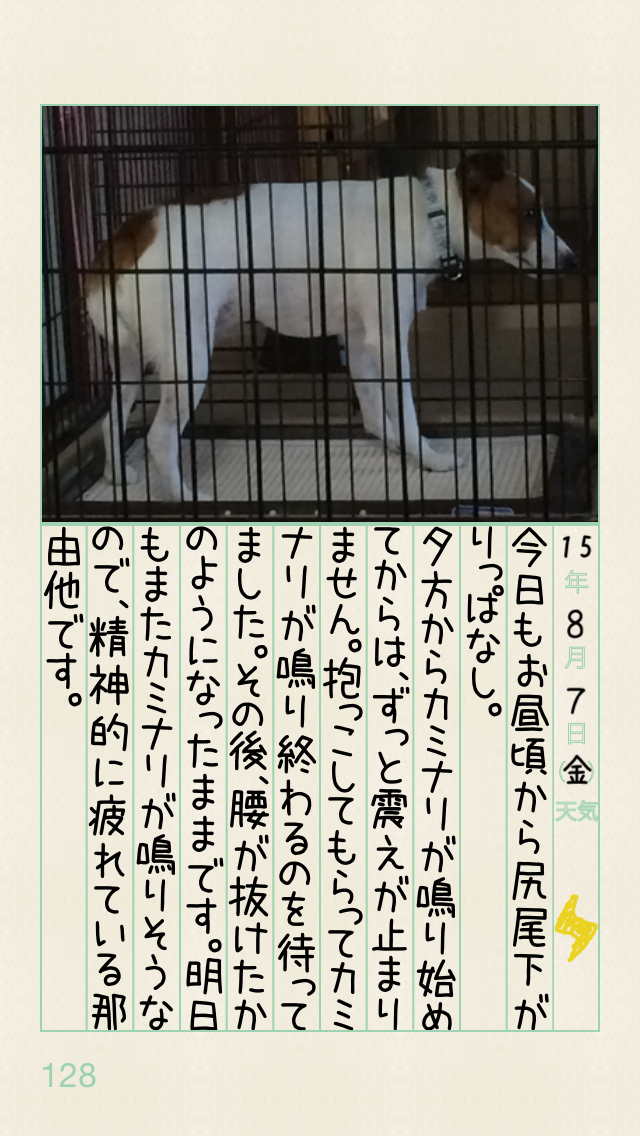 15年8月7日(金)天気
今日もお昼頃から尻尾下が
りっぱなし。
夕方からカミナリが鳴り始め
てからは、ずっと震えが止まり
ません。抱っこしてもらってカミ
ナリが鳴り終わるのを待って
ました。その後、腰が抜けたか
のようになったままです。明日
もまたカミナリが鳴りそうな
ので、精神的に疲れている那
由他です。
128